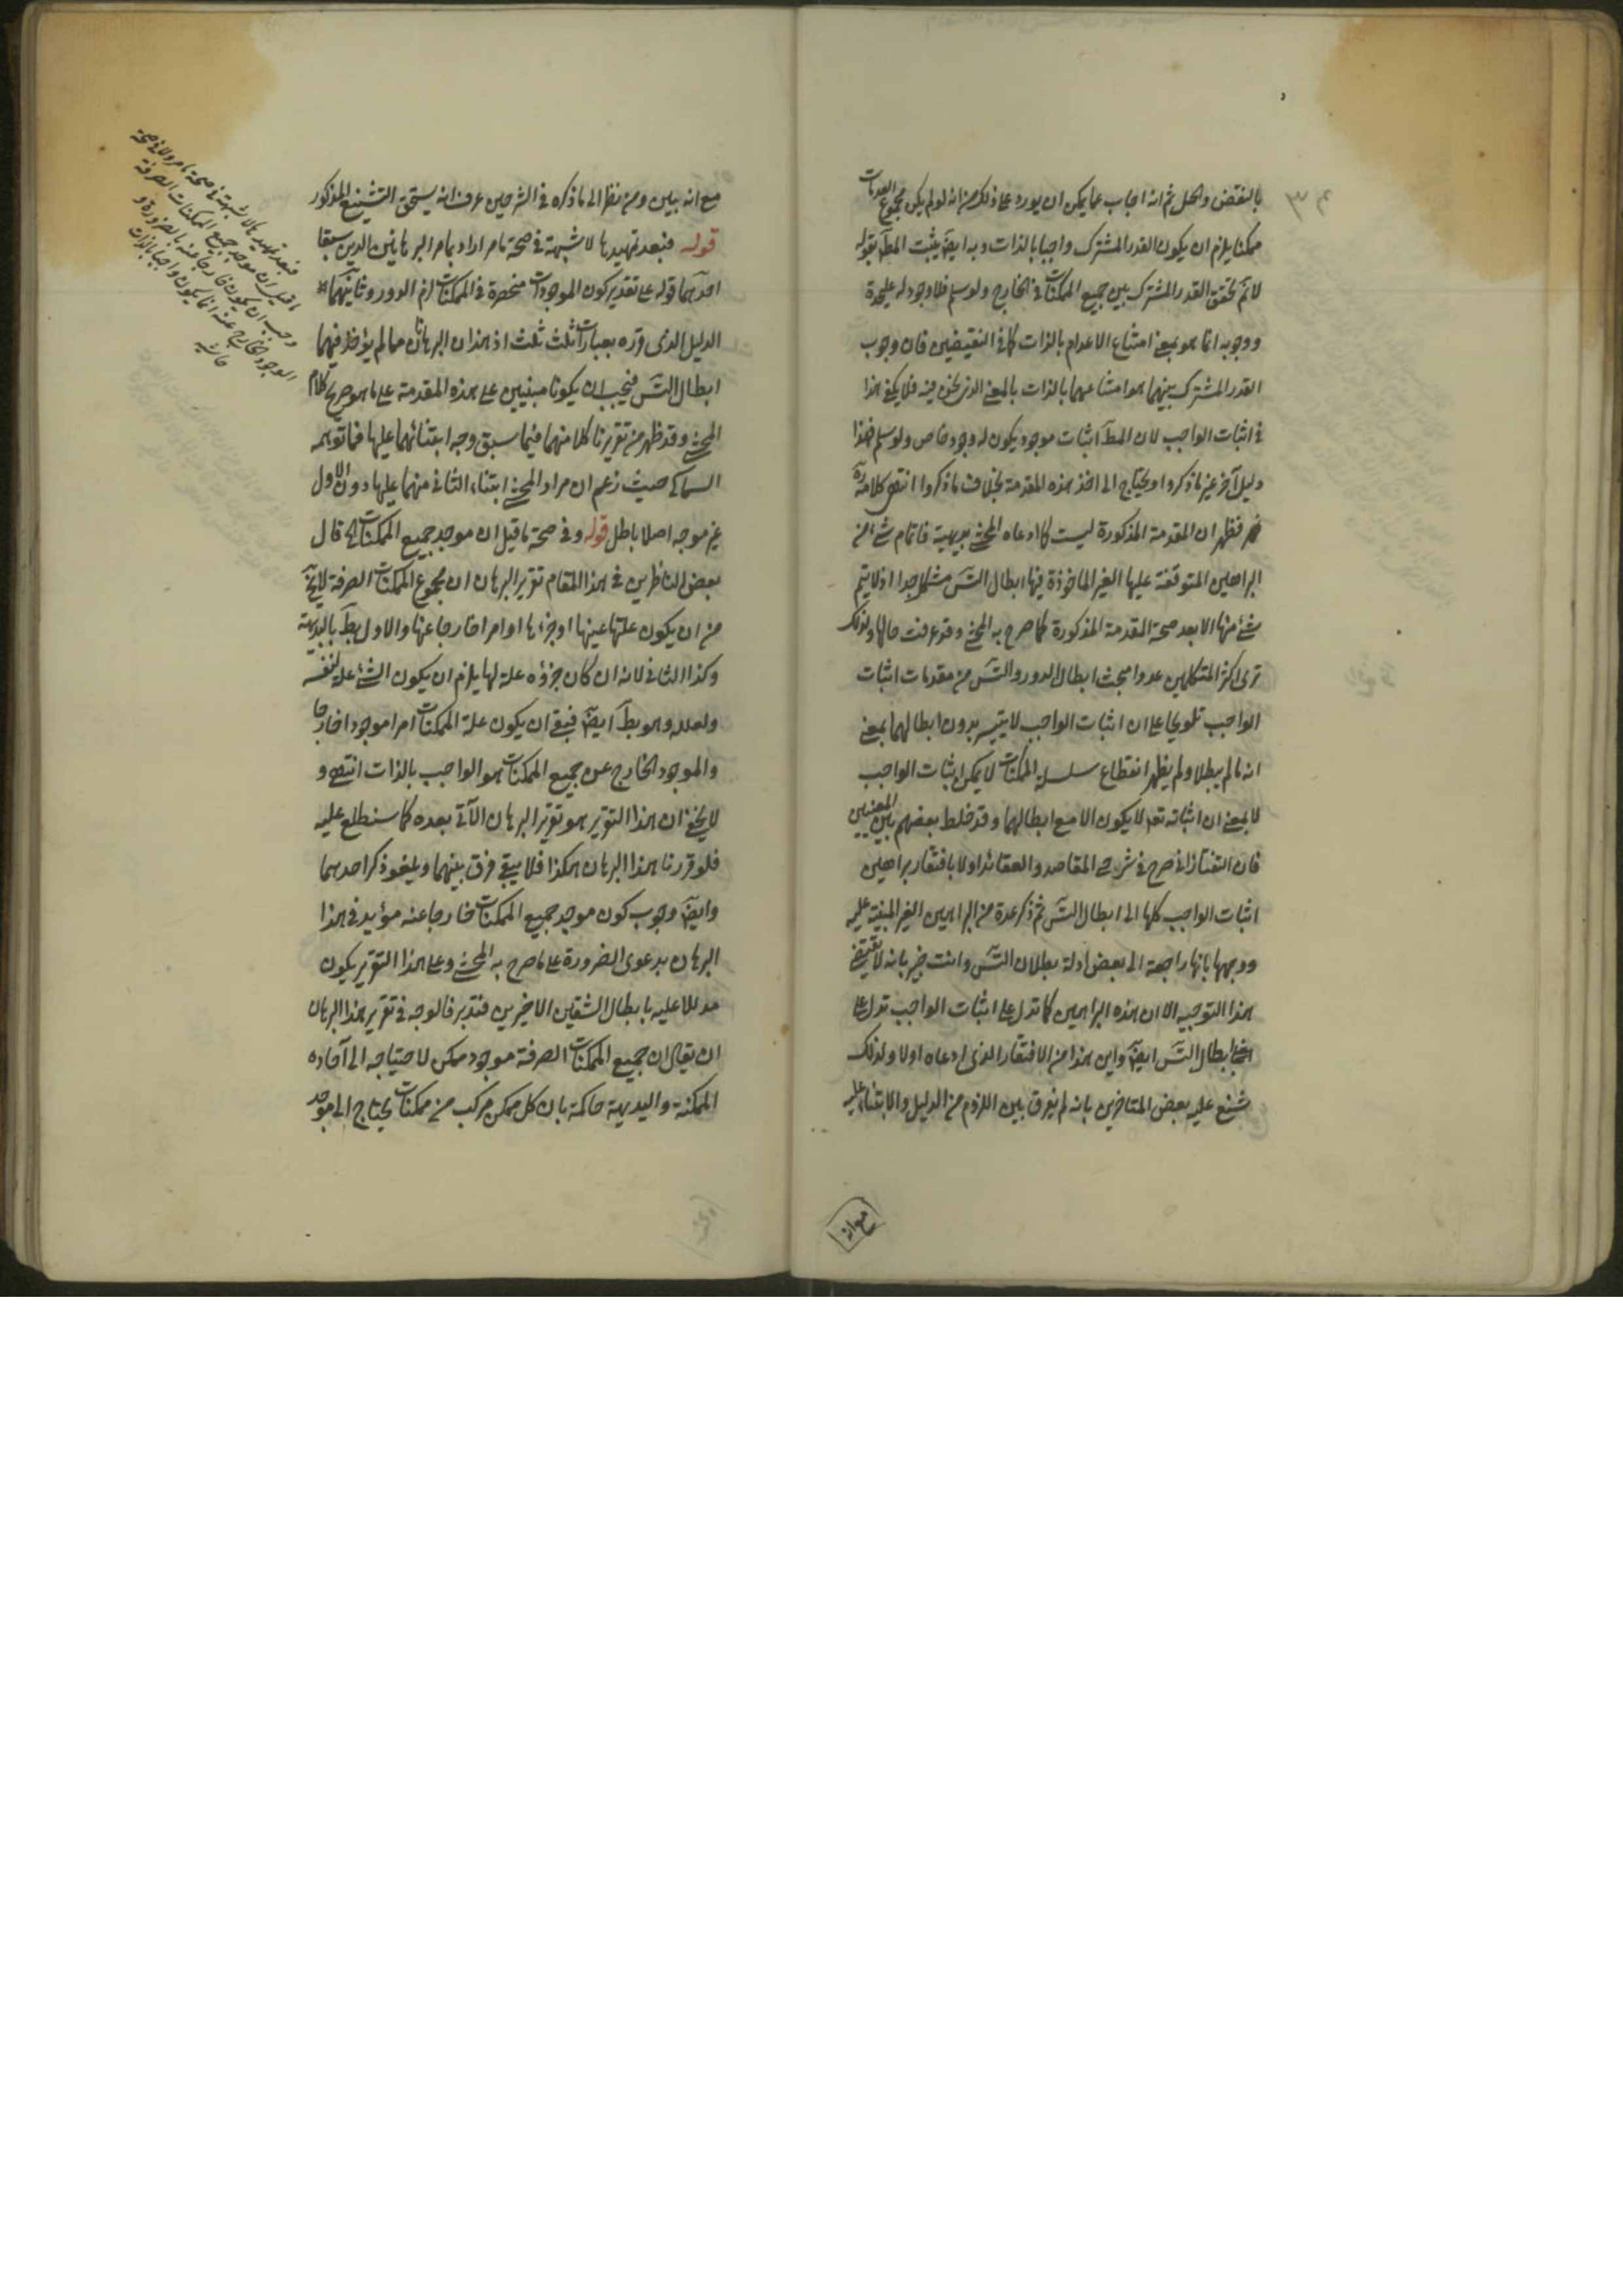 بالنقض والحل ثم انه اجاب عما يمكن ان يورد على ذلك من انه لو لم يكن مجموع العدمات
ممكنا يلزم ان يكون القدر المشترك واجبا بالذات وبه ايضا يثبت المط بقوله
لا نم تحقق القدر المشترك بين جميع الممكنات في الخارج ولو سلم فلا وجود له عليحدة
ووجوبه انما هو بمعنى امتناع الاعدام بالذات كما في النقيضين فان وجوب
القدر المشترك بينهما هو امتناعهما بالذات بالمعنى الذي نحن فيه فلا يكفي هذا
في اثبات الواجب لان المط اثبات موجود يكون له وجود خاص ولو سلم فهذا
دليل آخر غير ما ذكروا ويحتاج الى اخذ هذه المقدمة بخلاف ما ذكروا انتهى كلامه
فظهر ان المقدمة المذكورة ليست كما ادعاه المحشي بديهية فاتمام شئ من
البراهين المتوقفة عليها الغير الماخوذة فيها ابطال التس مشكل جدا اذ لا يتم
شئ منها الا بعد صحة المقدمة المذكورة كما صرح به المحشي وقد عرفت حالها ولذلك
ترى اكثر المتكلمين عدوا مبحث ابطال الدور والتس من مقدمات اثبات
الواجب تلويحا على ان اثبات الواجب لا يتيسر بدون ابطالهما بمعنى
انه ما لم يبطلا ولم يظهر انقطاع سلسلة الممكنات لا يمكن اثبات الواجب
لا بمعنى ان اثباته تعا لا يكون الا مع ابطالهما وقد خلط بعضهم بين المعنيين
فان التفتازاني صرح في شرحي المقاصد والعقائد اولا بافتقار براهين
اثبات الواجب كلها الى ابطال التس ثم ذكر عدة من البراهين الغير المبنية عليه
ووجهها بانها راجعة الى بعض ادلة بطلان التس وانت خبير بانه لا يقتضي
هذا التوجيه الا ان هذه البراهين كما تدل على اثبات الواجب تدل على
ابطال التس ايضا واين هذا من الافتقار الذي ادعاه اولا ولذلك
شنع عليه بعض المتاخرين بانه لم يفرق بين اللزوم من الدليل والابتناء عليه
مع انه
مع انه بين ومن نظر الى ما ذكره في الشرحين عرف انه يستحق التشنيع المذكور
قوله فبعد تمهيدها لا شبهة في صحة ما مر اراد بما مر البرهانين الذين سبقا
احدهما قوله على تقدير كون الموجودات منحصرة في الممكنات لزم الدور وثانيهما
الدليل الذي قرره بعبارات ثلث اذ هذان البرهانان مما لم يؤخذ فيهما
ابطال التس فيجب ان يكونا مبنيين على هذه المقدمة على ما هو صريح كلام
المحشي وقد ظهر من تقريرنا كلا منهما فيما سبق وجه ابتنائهما عليها فما توهمه
السماكي حيث زعم ان مراد المحشي ابتناء الثاني منهما عليها دون الاول
غير موجه اصلا باطل قوله وفي صحة ما قيل ان موجد جميع الممكنات الخ قال
بعض الناظرين في هذا المقام تقرير البرهان ان مجموع الممكنات الصرفة لا يخ
من ان يكون علتها عينها او جزءها او امرا خارجا عنها والاول بط بالبديهة
وكذا الثاني لانه ان كان جزؤه علة لها يلزم ان يكون الشئ علة لنفسه
ولعلله وهو بط ايضا فبقي ان يكون علة الممكنات امرا موجودا خارجا
والموجود الخارج عن جميع الممكنات هو الواجب بالذات انتهى و
لا يخفى ان هذا التقرير هو تقرير البرهان الآتي بعده كما ستطلع عليه
فلو قررنا هذا البرهان هكذا فلا يبقى فرق بينهما ويلغو ذكر احدهما
وايضا وجوب كون موجد جميع الممكنات خارجا عنه مؤيد في هذا
البرهان بدعوى الضرورة على ما صرح به المحشي وعلى هذا التقرير يكون
مدللا عليه بابطال الشقين الاخيرين فتدبر فالوجه في تقرير هذا البرهان
ان يقال ان جميع الممكنات الصرفة موجود ممكن لاحتياجه الى آحاده
الممكنة والبديهة حاكمة بان كل ممكن مركب من ممكنات يحتاج الى موجد
فبعد تمهيدها لا شبهة في صحة ما مر ولا في صحة
ما قيل ان موجد جميع الممكنات الصرفة
وجب ان يكون خارجا عنه بالضرورة و
الموجود الخارج عنه انما يكون واجبا بالذات
حاشية